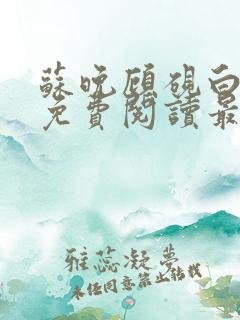 蘇晚顧硯白
免費閱讀最
雅蕊凝夢
未经同意禁止转载